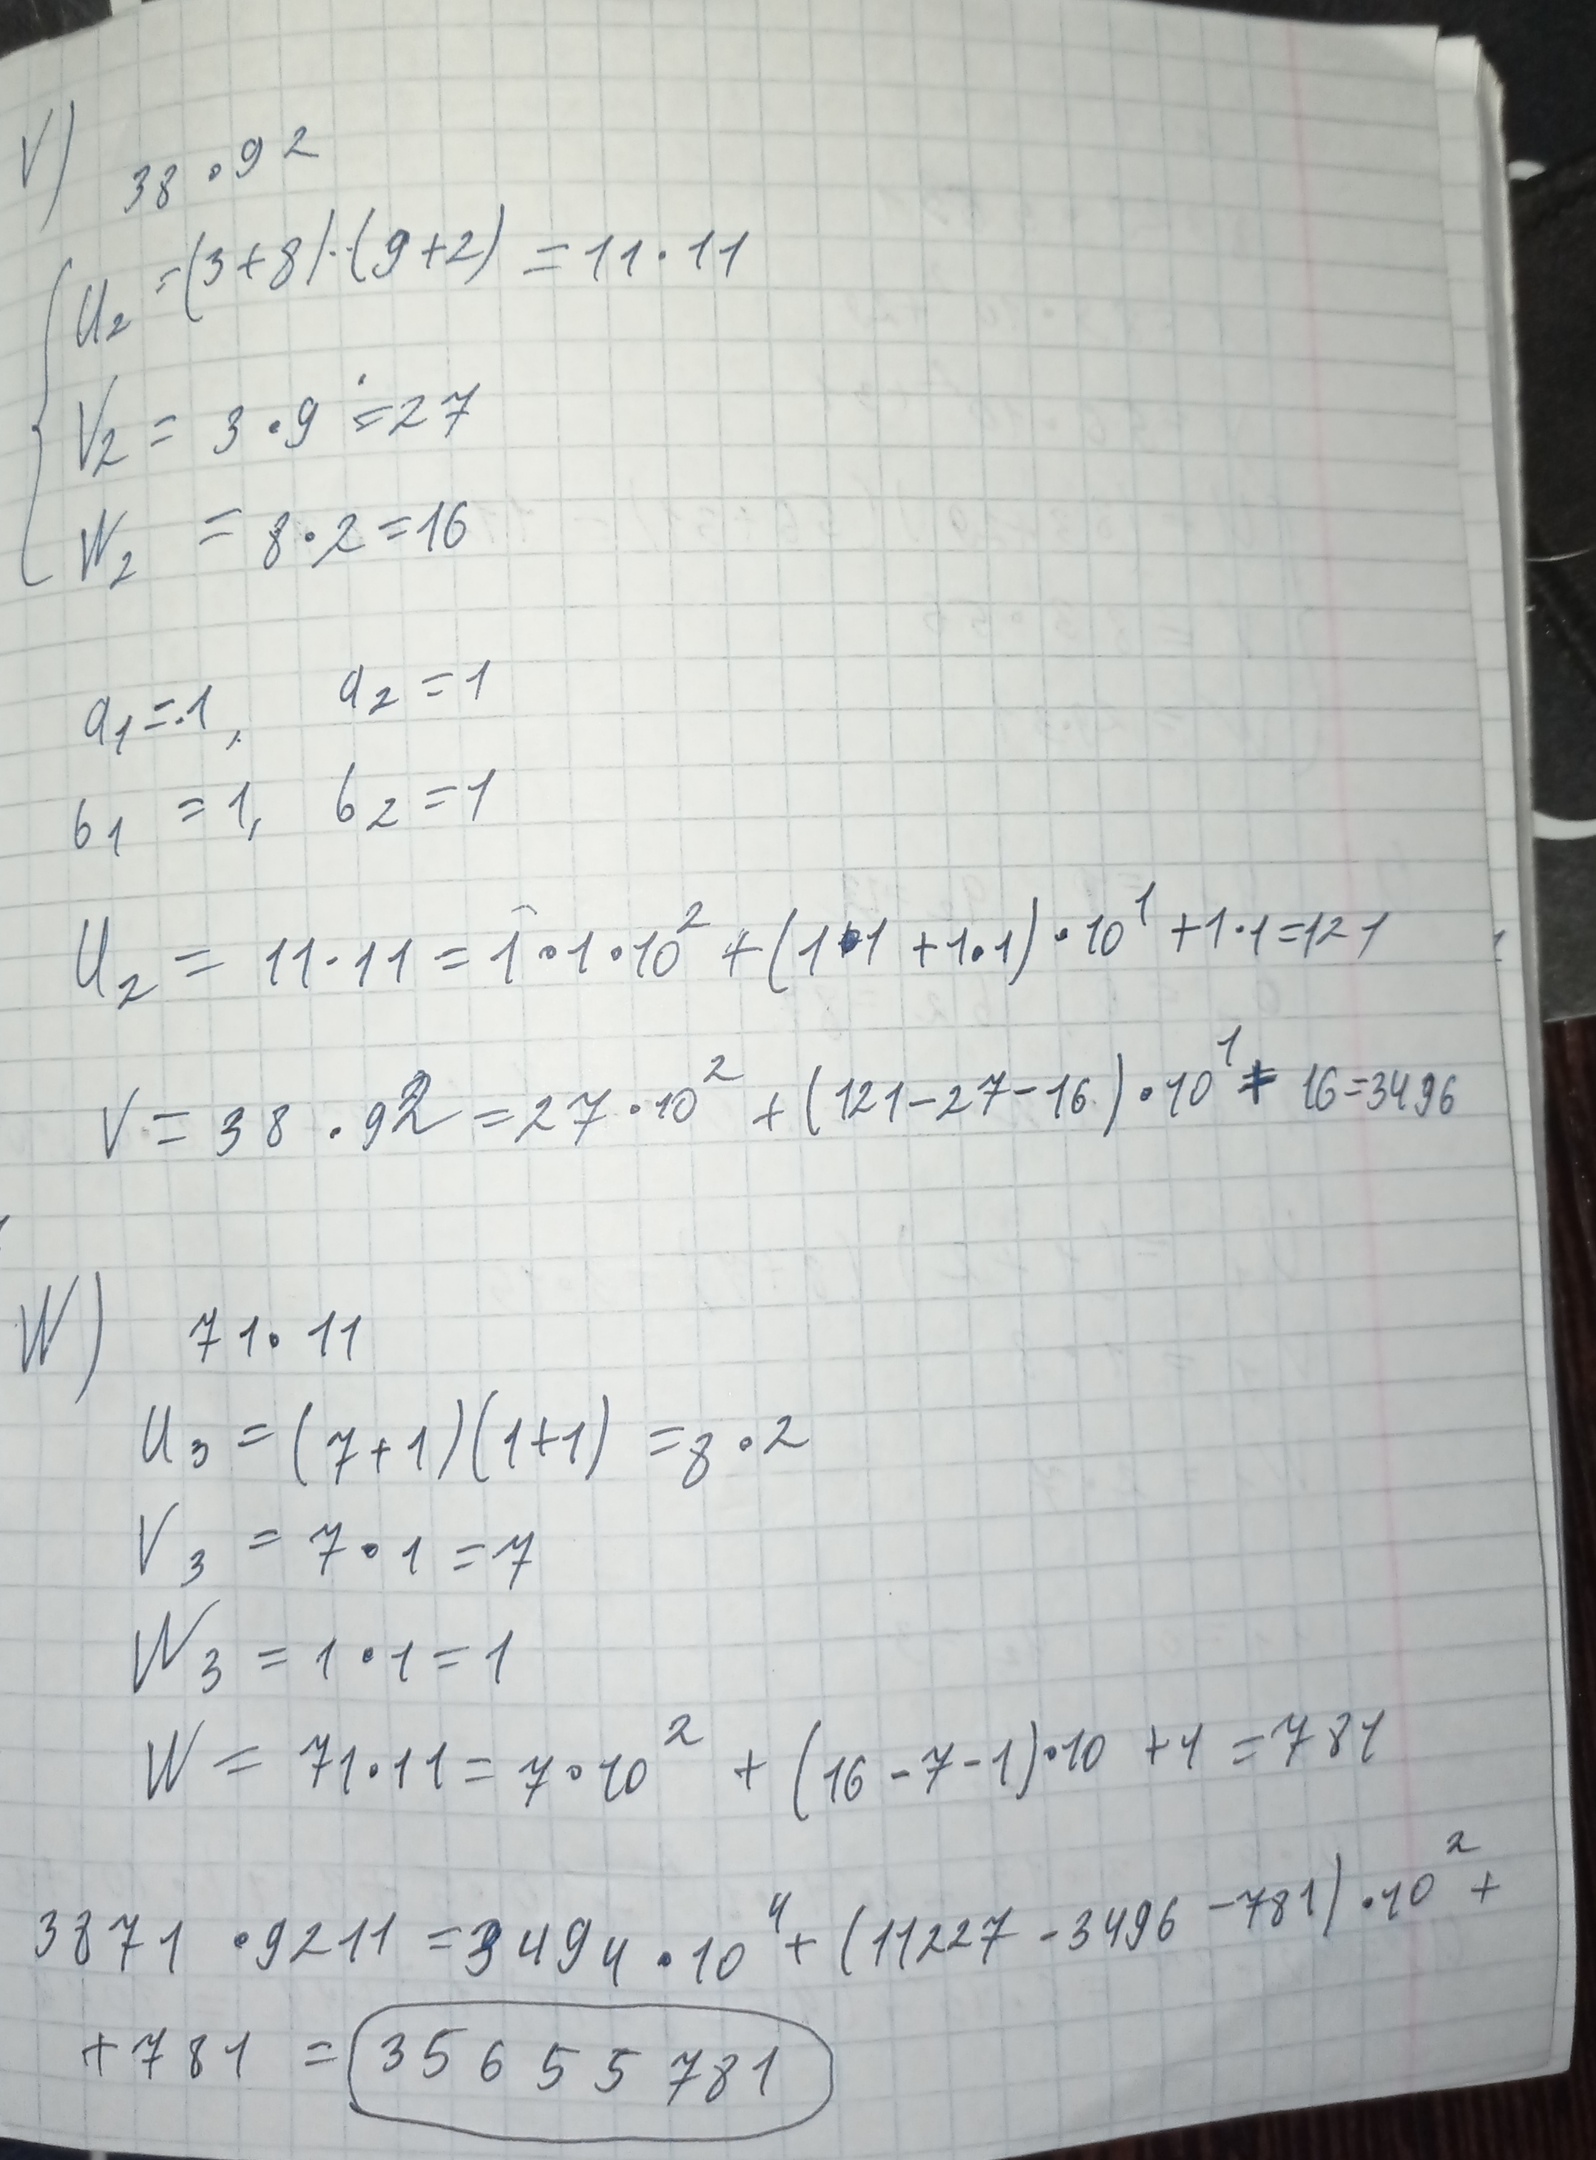 V) 38 · 92
U₂ = (3+8)·(9+2) = 11·11
V₂ = 3·9 = 27
W₂ = 8·2 = 16
a₁ = 1, a₂ = 1
b₁ = 1, b₂ = 1
U₂ = 11·11 = 1·1·10² + (1·1 + 1·1)·10¹ + 1·1 = 121
V = 38 · 92 = 27·10² + (121-27-16)·10¹ + 16 = 3496
W) 71·11
U₃ = (7+1)(1+1) = 8·2
V₃ = 7·1 = 7
W₃ = 1·1 = 1
W = 71·11 = 7·10² + (16-7-1)·10 + 1 = 781
3871 · 9211 = 3494·10⁴ + (11227 - 3496 - 781)·10² +
+ 781 = 35655781